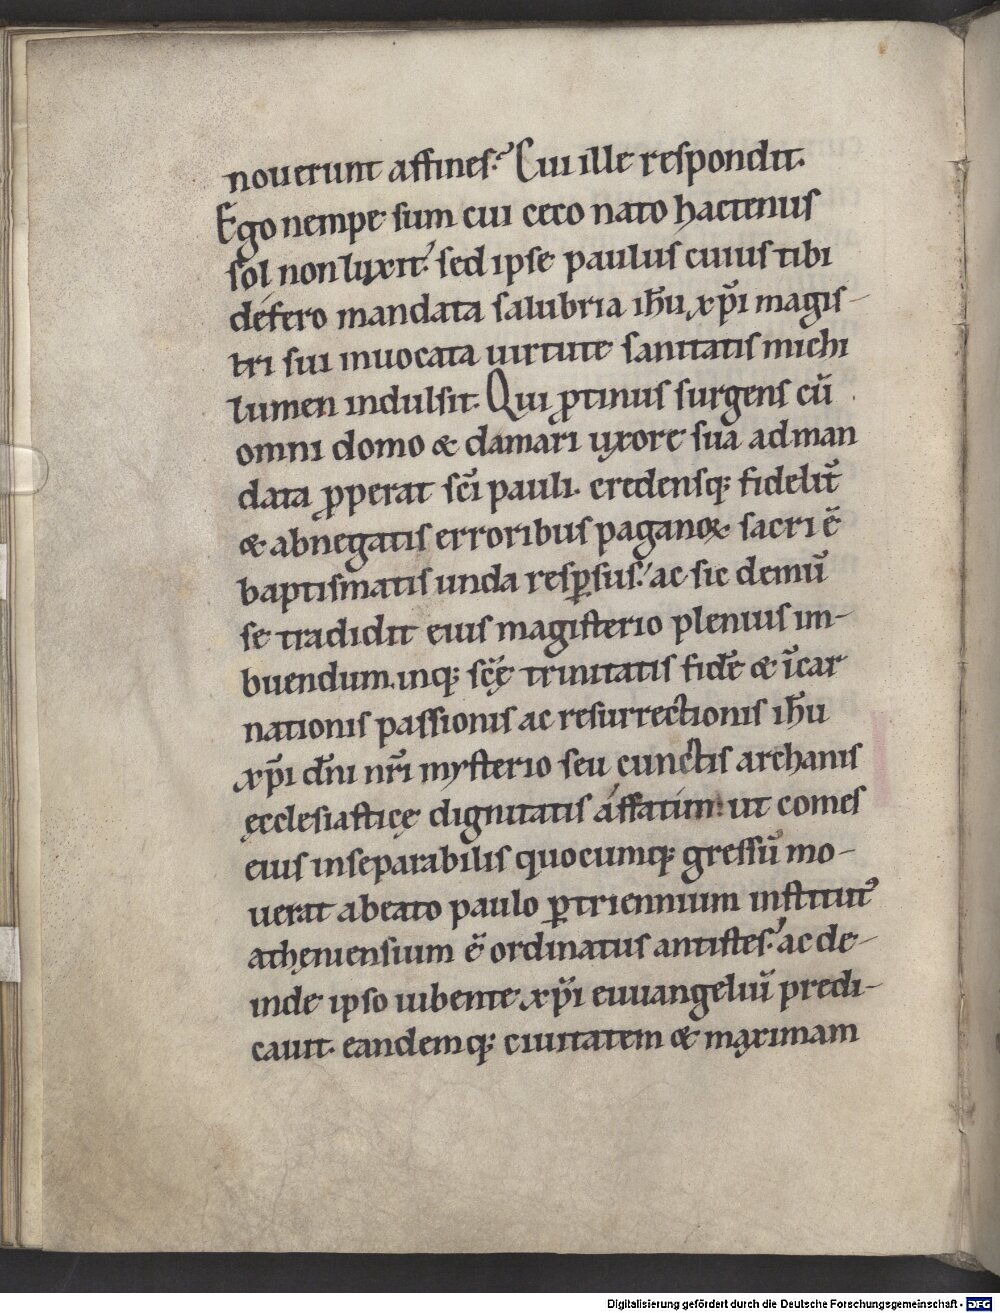 nouerunt affines? Cui ille respondit.
Ego nempe sum cui ceco nato hactenus
sol non luxit. sed ipse paulus cuius tibi
defero mandata salubria ih̅u xp̅i magis-
tri sui inuocata uirtute sanitatis michi
lumen indulsit. Qui ꝓtinus surgens cu̅
omni domo & damari uxore sua ad man
data ꝓperat sc̅i pauli. credensq; fidelit̅
& abnegatis erroribus paganoꝝ sacri e̅
baptismatis unda resꝑsus. ac sic demu̅
se tradidit eius magisterio plenius im-
buendum. inq; sc̅ę trinitatis fide & i̅car
nationis passionis ac resurrectionis ih̅u
xp̅i dn̅i nr̅i mysterio seu cunctis archanis
ęcclesiasticę dignitatis affatim. ut comes
eius inseparabilis quocumq; gressu̅ mo-
uerat a beato paulo ꝑ triennium institut᾽
atheniensium e̅ ordinatus antistes. ac de-
inde ipso iubente xp̅i euuangeliu̅ predi-
cauit. eandemq; ciuitatem & maximam
Digitalisierung gefördert durch die Deutsche Forschungsgemeinschaft - DFG